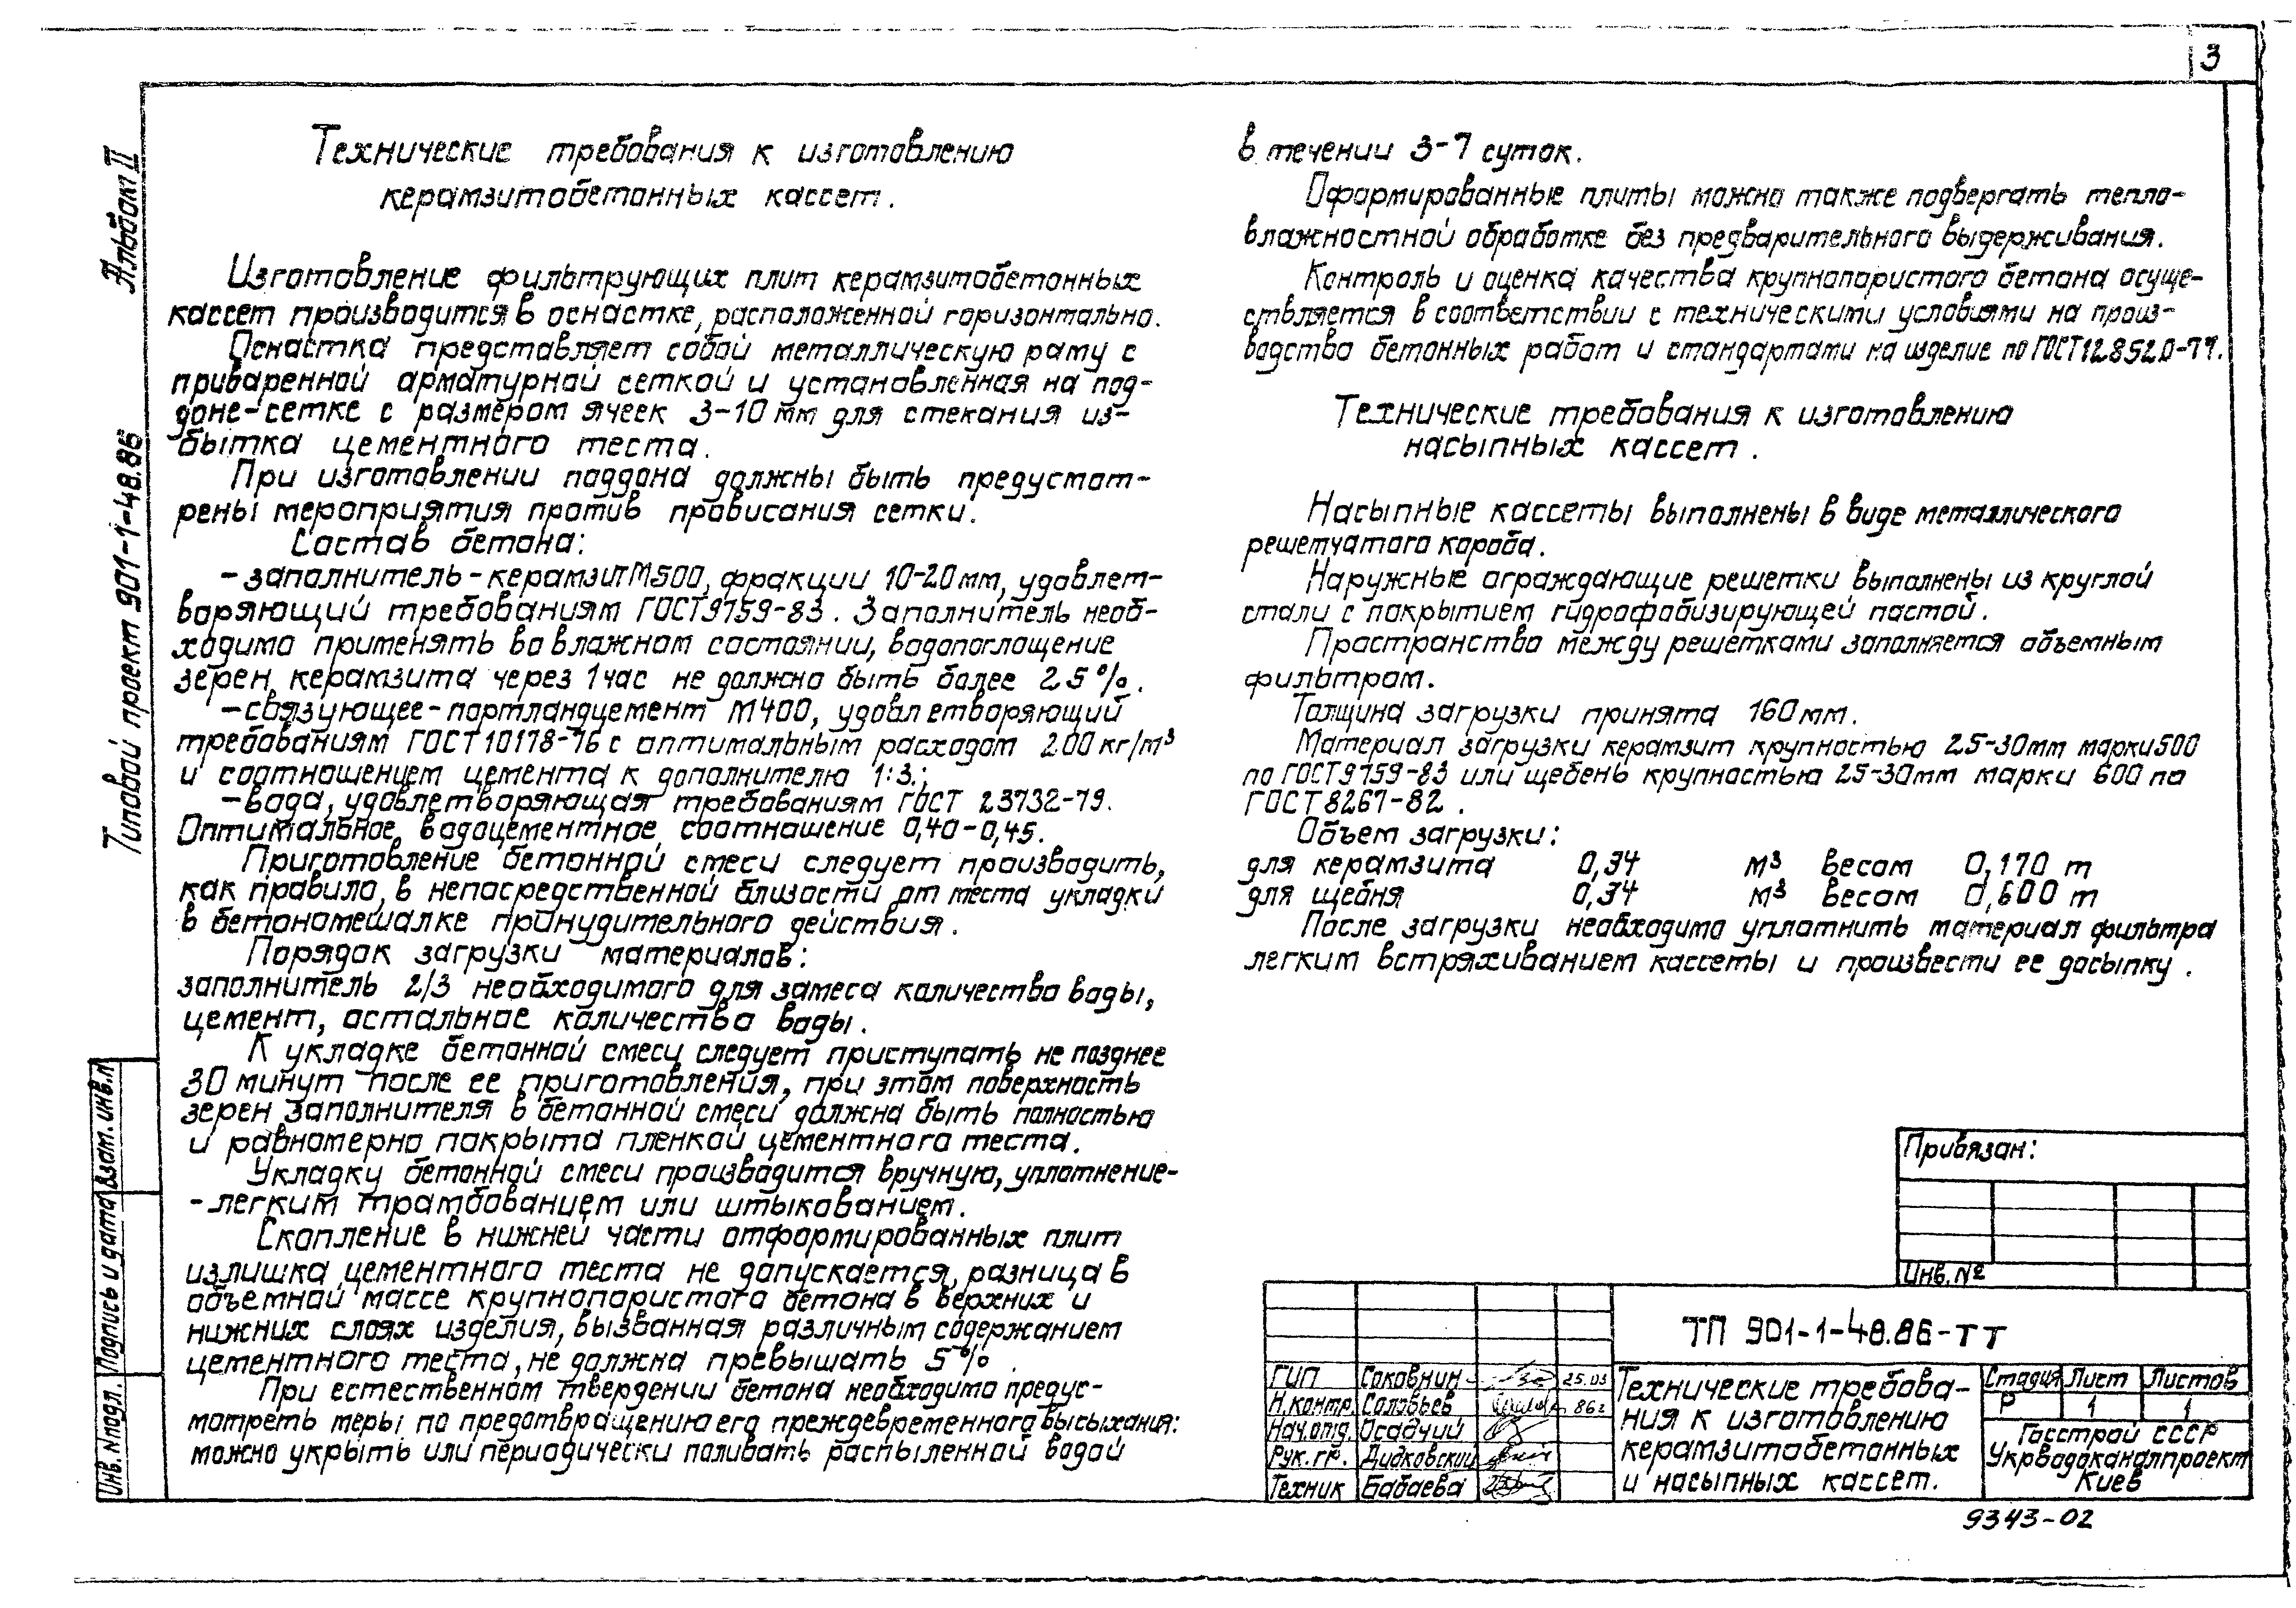 3
Альбом II
Типовой проект 901-1-48.86
Технические требования к изготовлению
керамзитобетонных кассет.
Изготовление фильтрующих плит керамзитобетонных
кассет производится в оснастке, расположенной горизонтально.
Оснастка представляет собой металлическую раму с
приваренной арматурной сеткой и установленная на под-
доне-сетке с размером ячеек 3-10 мм для стекания из-
бытка цементного теста.
При изготовлении поддона должны быть предусмот-
рены мероприятия против провисания сетки.
Состав бетона:
- заполнитель - керамзит М500, фракции 10-20 мм, удовлет-
воряющий требованиям ГОСТ 9759-83. Заполнитель необ-
ходимо применять во влажном состоянии, водопоглощение
зерен керамзита через 1 час не должно быть более 25%.
- связующее - портландцемент М400, удовлетворяющий
требованиям ГОСТ 10178-76 с оптимальным расходом 200 кг/м³
и соотношением цемента к дополнителю 1:3.;
- вода, удовлетворяющая требованиям ГОСТ 23732-79.
Оптимальное водоцементное соотношение 0,40-0,45.
Приготовление бетонной смеси следует производить,
как правило, в непосредственной близости от места укладки
в бетономешалке принудительного действия.
Порядок загрузки материалов:
заполнитель 2/3 необходимого для замеса количества воды,
цемент, остальное количество воды.
К укладке бетонной смеси следует приступать не позднее
30 минут после ее приготовления, при этом поверхность
зерен заполнителя в бетонной смеси должна быть полностью
и равномерно покрыта пленкой цементного теста.
Укладку бетонной смеси производится вручную, уплотнение-
- легким трамбованием или штыкованием.
Скопление в нижней части отформированных плит
излишка цементного теста не допускается, разница в
объемной массе крупнопористого бетона в верхних и
нижних слоях изделия, вызванная различным содержанием
цементного теста, не должна превышать 5%.
При естественном твердении бетона необходимо предус-
мотреть меры по предотвращению его преждевременного высыхания:
можно укрыть или периодически поливать распыленной водой
в течении 3-7 суток.
Оформированные плиты можно также подвергать тепло-
влажностной обработке без предварительного выдерживания.
Контроль и оценка качества крупнопористого бетона осуще-
ствляется в соответствии с техническими условиями на произ-
водство бетонных работ и стандартами на изделие по ГОСТ 12.852.0-77.
Технические требования к изготовлению
насыпных кассет.
Насыпные кассеты выполнены в виде металлического
решетчатого короба.
Наружные ограждающие решетки выполнены из круглой
стали с покрытием гидрофобизирующей пастой.
Пространство между решетками заполняется объемным
фильтром.
Толщина загрузки принята 160 мм.
Материал загрузки керамзит крупностью 25-30 мм марки 500
по ГОСТ 9759-83 или щебень крупностью 25-30 мм марки 600 по
ГОСТ 8267-82.
Объем загрузки:
для керамзита 0,34 м³ весом 0,170 т
для щебня 0,34 м³ весом 0,600 т
После загрузки необходимо уплотнить материал фильтра
легким встряхиванием кассеты и произвести ее досыпку.
Взам. инв. N
Подпись и дата
Инв. N подл.
Привязан:
Инв. №
ТП 901-1-48.86-ТТ
ГИП Соковнин 25.03
Н.контр. Соловьев 86г
Нач.отд. Осадчий
Рук. гр. Дидковский
Техник Бабаева
Технические требова-
ния к изготовлению
керамзитобетонных
и насыпных кассет.
Стадия Лист Листов
Р 1 1
Госстрой СССР
Укрводоканалпроект
Киев
9343-02